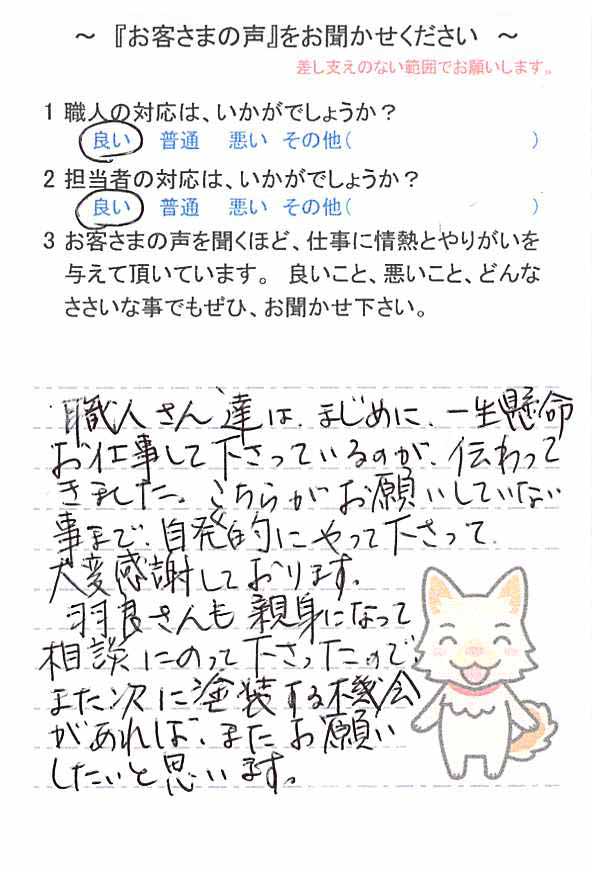 ～ 『お客さまの声』をお聞かせください ～
差し支えのない範囲でお願いします。
1 職人の対応は、いかがでしょうか？
良い 普通 悪い その他( )
2 担当者の対応は、いかがでしょうか？
良い 普通 悪い その他( )
3 お客さまの声を聞くほど、仕事に情熱とやりがいを
与えて頂いています。 良いこと、悪いこと、どんな
ささいな事でもぜひ、お聞かせ下さい。
職人さん達は、まじめに、一生懸命
お仕事して下さっているのが、伝わって
きました。こちらがお願いしていない
事まで、自発的にやって下さって、
大変感謝しております。
羽良さんも親身になって
相談にのって下さったので、
また次に塗装する機会
があれば、またお願い
したいと思います。